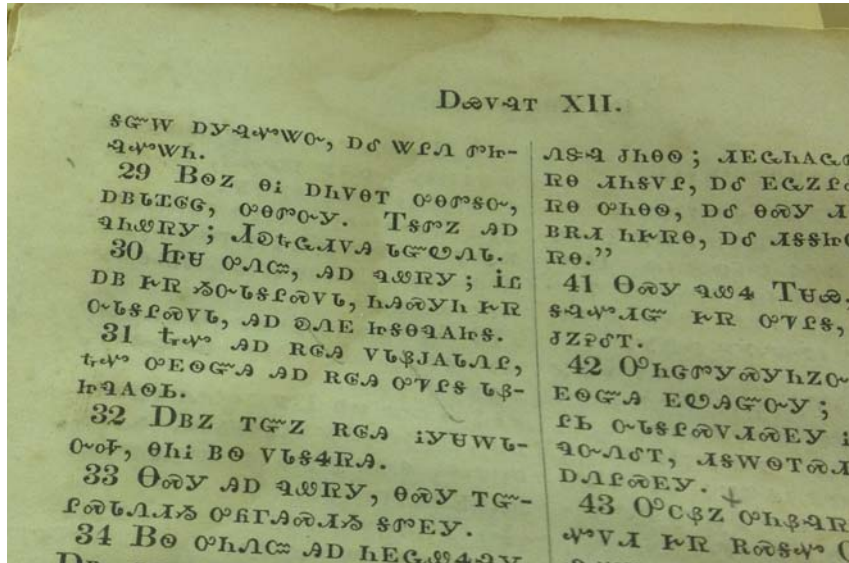 ᎠᏯᏙᎸᎢ XII.
ᎦᏳᎳ ᎠᎩᎸᏉᏔᏅ, ᎠᎴ ᏔᎵᏁ ᏛᏥ-
ᎸᏉᏔᏂ.
29 ᏴᏫᏃ ᎾᎥ ᎠᏂᏙᎾᎢ ᎤᎾᏛᎦᏅ,
ᎠᏴᏓᏆᎶᎶ, ᎤᎾᏛᏅᎩ. ᎢᎦᏛᏃ ᎯᎠ
ᏄᏂᏪᏒᎩ; ᏗᎧᎿᏩᏗᏙᎯ ᏓᏳᏬᏁᏓ.
30 ᏥᏌ ᎤᏁᏨ, ᎯᎠ ᏄᏪᏒᎩ; ᎥᏝ
ᎠᏴ ᎨᏒ ᏱᏅᏓᎦᎵᏍᏙᏓ, ᏂᎯᏍᎩᏂ ᎨᏒ
ᏅᏓᎦᎵᏍᏙᏓ, ᎯᎠ ᏫᏁᎬ ᏥᎦᎾᏄᎪᏥᎦ.
31 ᎿᏉ ᎯᎠ ᎡᎶᎯ ᏙᏓᏰᎫᎪᏓᏁᎵ,
ᎿᏉ ᎤᎬᏫᏳᎯ ᎯᎠ ᎡᎶᎯ ᎤᏤᎵᎦ ᏓᏰ-
ᏥᏄᎪᏫᏏ.
32 ᎠᏴᏃ ᎢᏳᏃ ᎡᎶᎯ ᎥᎩᏌᎳᏓ-
ᏅᎭ, ᎾᏂᎥ ᏴᏫ ᏙᏓᎦᏎᏒᎯ.
33 ᎾᏍᎩ ᎯᎠ ᏄᏪᏒᎩ, ᎾᏍᎩ ᎢᏳ-
ᎵᏍᏓᏁᏗᏱ ᎤᏲᎱᎯᏍᏗᏱ ᎦᏛᎬᎩ.
34 ᏴᏫ ᎤᏂᏁᏨ ᎯᎠ ᏂᎬᏩᏪᏎᎸᎩ
ᏁᎦᎸ ᏧᏂᎾᏫ;
ᏒᎾ ᏗᏂᎦᏙᎵ, ᎠᎴ
ᏒᎾ ᎤᏂᎾᏫ, ᎠᎴ ᎾᏍᎩ
ᏴᏒᏗ ᏂᎨᏒᎾ, ᎠᎴ
ᏒᎾ.”
41 ᎾᏍᎩ ᏄᏪᏎ ᎢᏌᏯ,
ᎦᎸᏉᏗᏳ ᎨᏒ ᎤᏤᎵᎦ,
ᏧᏃᎮᎴᎢ.
42 ᎤᏂᎶᏛᎩᏍᎩᏂᏃᏅ
ᎬᏫᏳᎯ ᎬᏬᎯᏳᏅᎩ;
ᎵᏏ ᏅᏓᎦᎵᏍᏙᏗᏍᎬᎩ
ᎸᏅᏁᎴᎢ,
ᎠᏁᎵᏍᎬᎩ.
43 ᎤᏟᏰᏃ
ᏉᏙᏗ ᎨᏒ ᎡᏍᎦᏉ